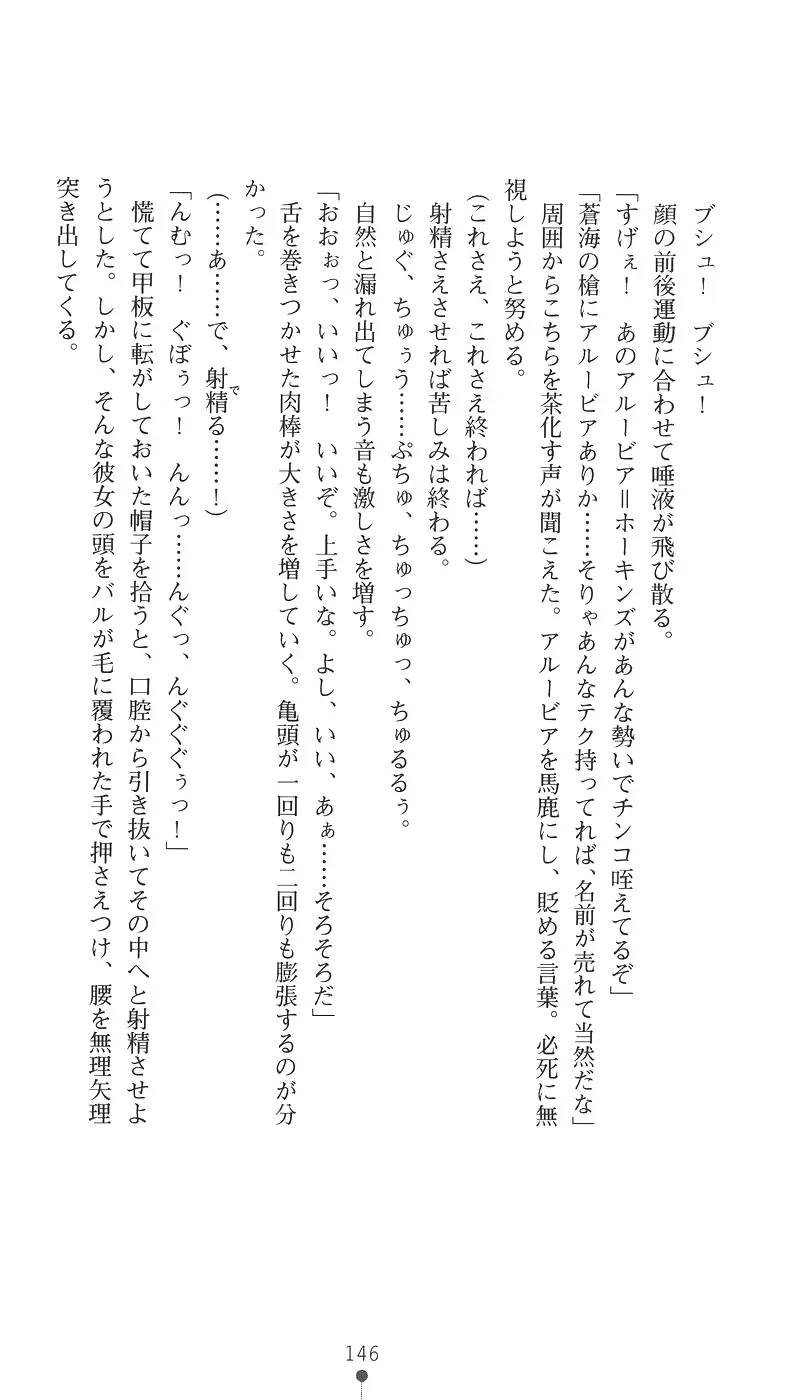 ブシュ！　ブシュ！
顔の前後運動に合わせて唾液が飛び散る。
「すげぇ！　あのアルービア＝ホーキンズがあんな勢いでチンコ咥えてるぞ」
「蒼海の槍にアルービアありか……そりゃあんなテク持ってれば、名前が売れて当然だな」
周囲からこちらを茶化す声が聞こえた。アルービアを馬鹿にし、貶める言葉。必死に無
視しようと努める。
(これさえ、これさえ終われば……)
射精さえさせれば苦しみは終わる。
じゅぐ、ちゅぅう……ぷちゅ、ちゅっちゅっ、ちゅるるぅ。
自然と漏れ出てしまう音も激しさを増す。
「おおぉっ、いいっ！　いいぞ。上手いな。よし、いい、あぁ……そろそろだ」
舌を巻きつかせた肉棒が大きさを増していく。亀頭が一回りも二回りも膨張するのが分
かった。
(……あ……で、射精る……！)
で
「んむっ！　ぐぼぅっ！　んんっ……んぐっ、んぐぐぅっ！」
慌てて甲板に転がしておいた帽子を拾うと、口腔から引き抜いてその中へと射精させよ
うとした。しかし、そんな彼女の頭をバルが毛に覆われた手で押さえつけ、腰を無理矢理
突き出してくる。
146